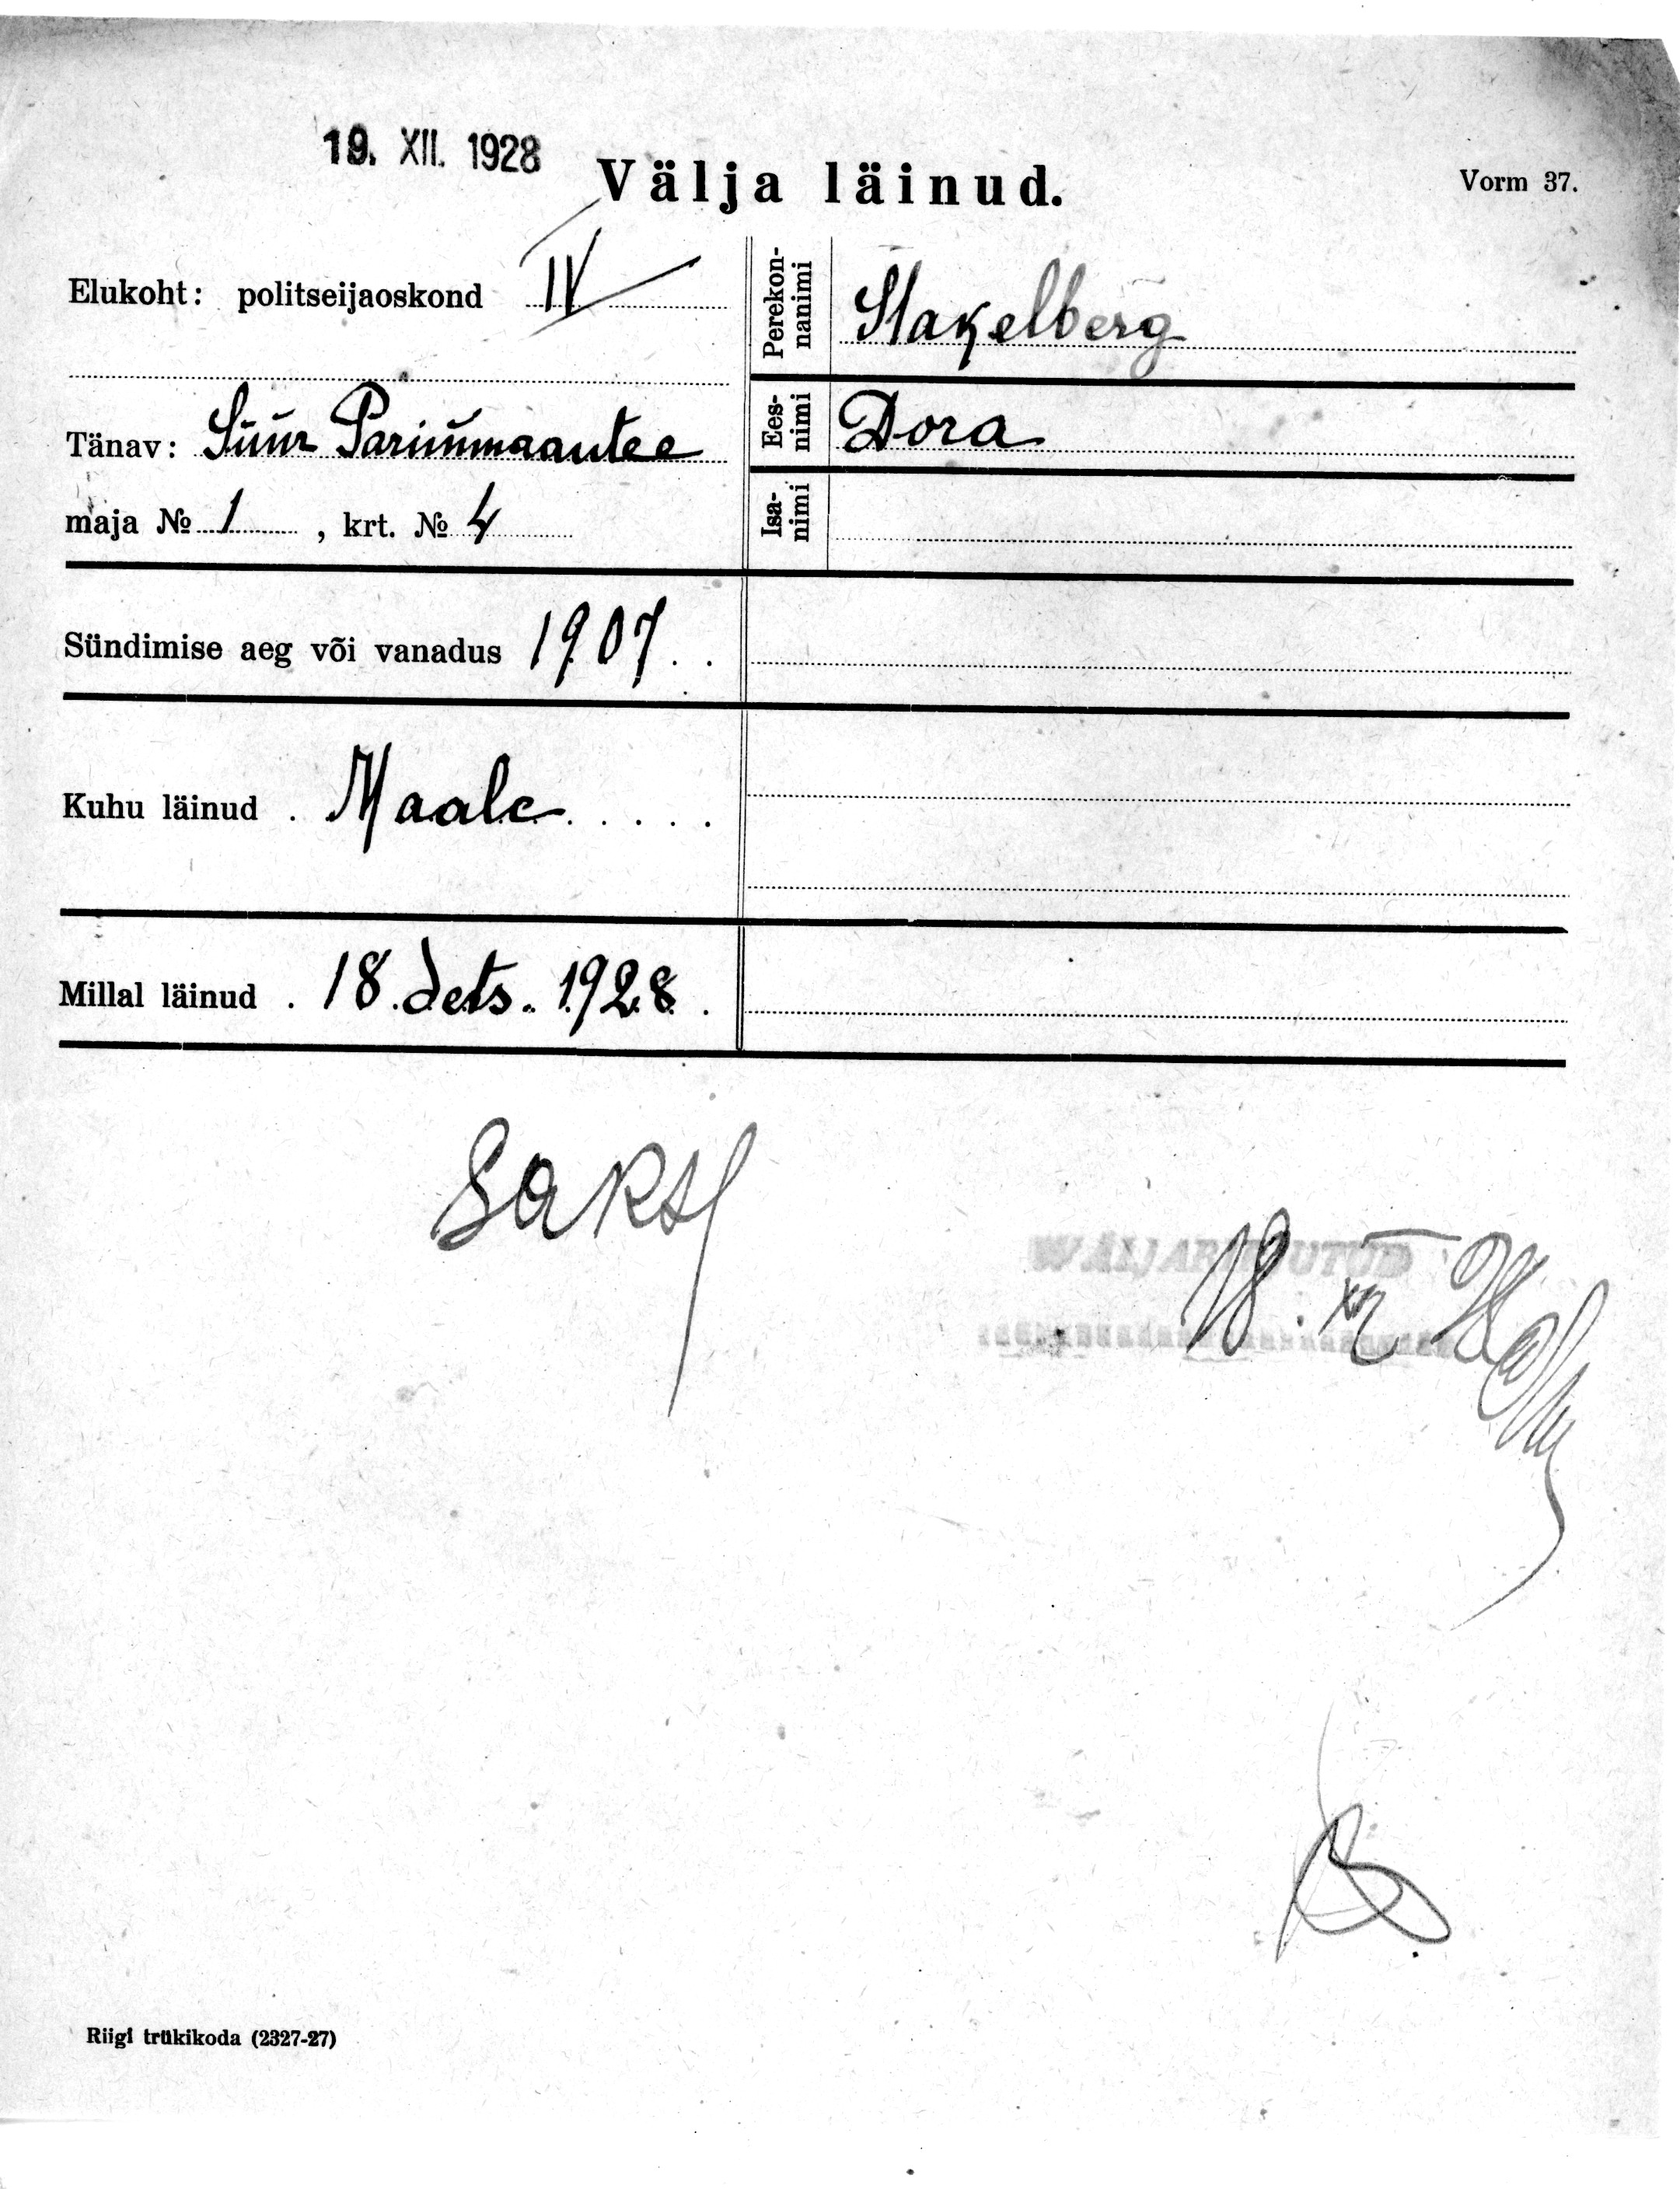 19. XII. 1928
Välja läinud.
Vorm 37.
Elukoht: politseijaoskond IV
Tänav: Suur Pärnumaantee
maja № 1, krt. № 4
Perekon-
nanimi
Stakelberg
Ees-
nimi
Dora
Isa-
nimi
Sündimise aeg või vanadus 1907
Kuhu läinud . Maale
Millal läinud . 18. dets. 1928.
Saksl
18. XII 28
Riigi trükikoda (2327-27)